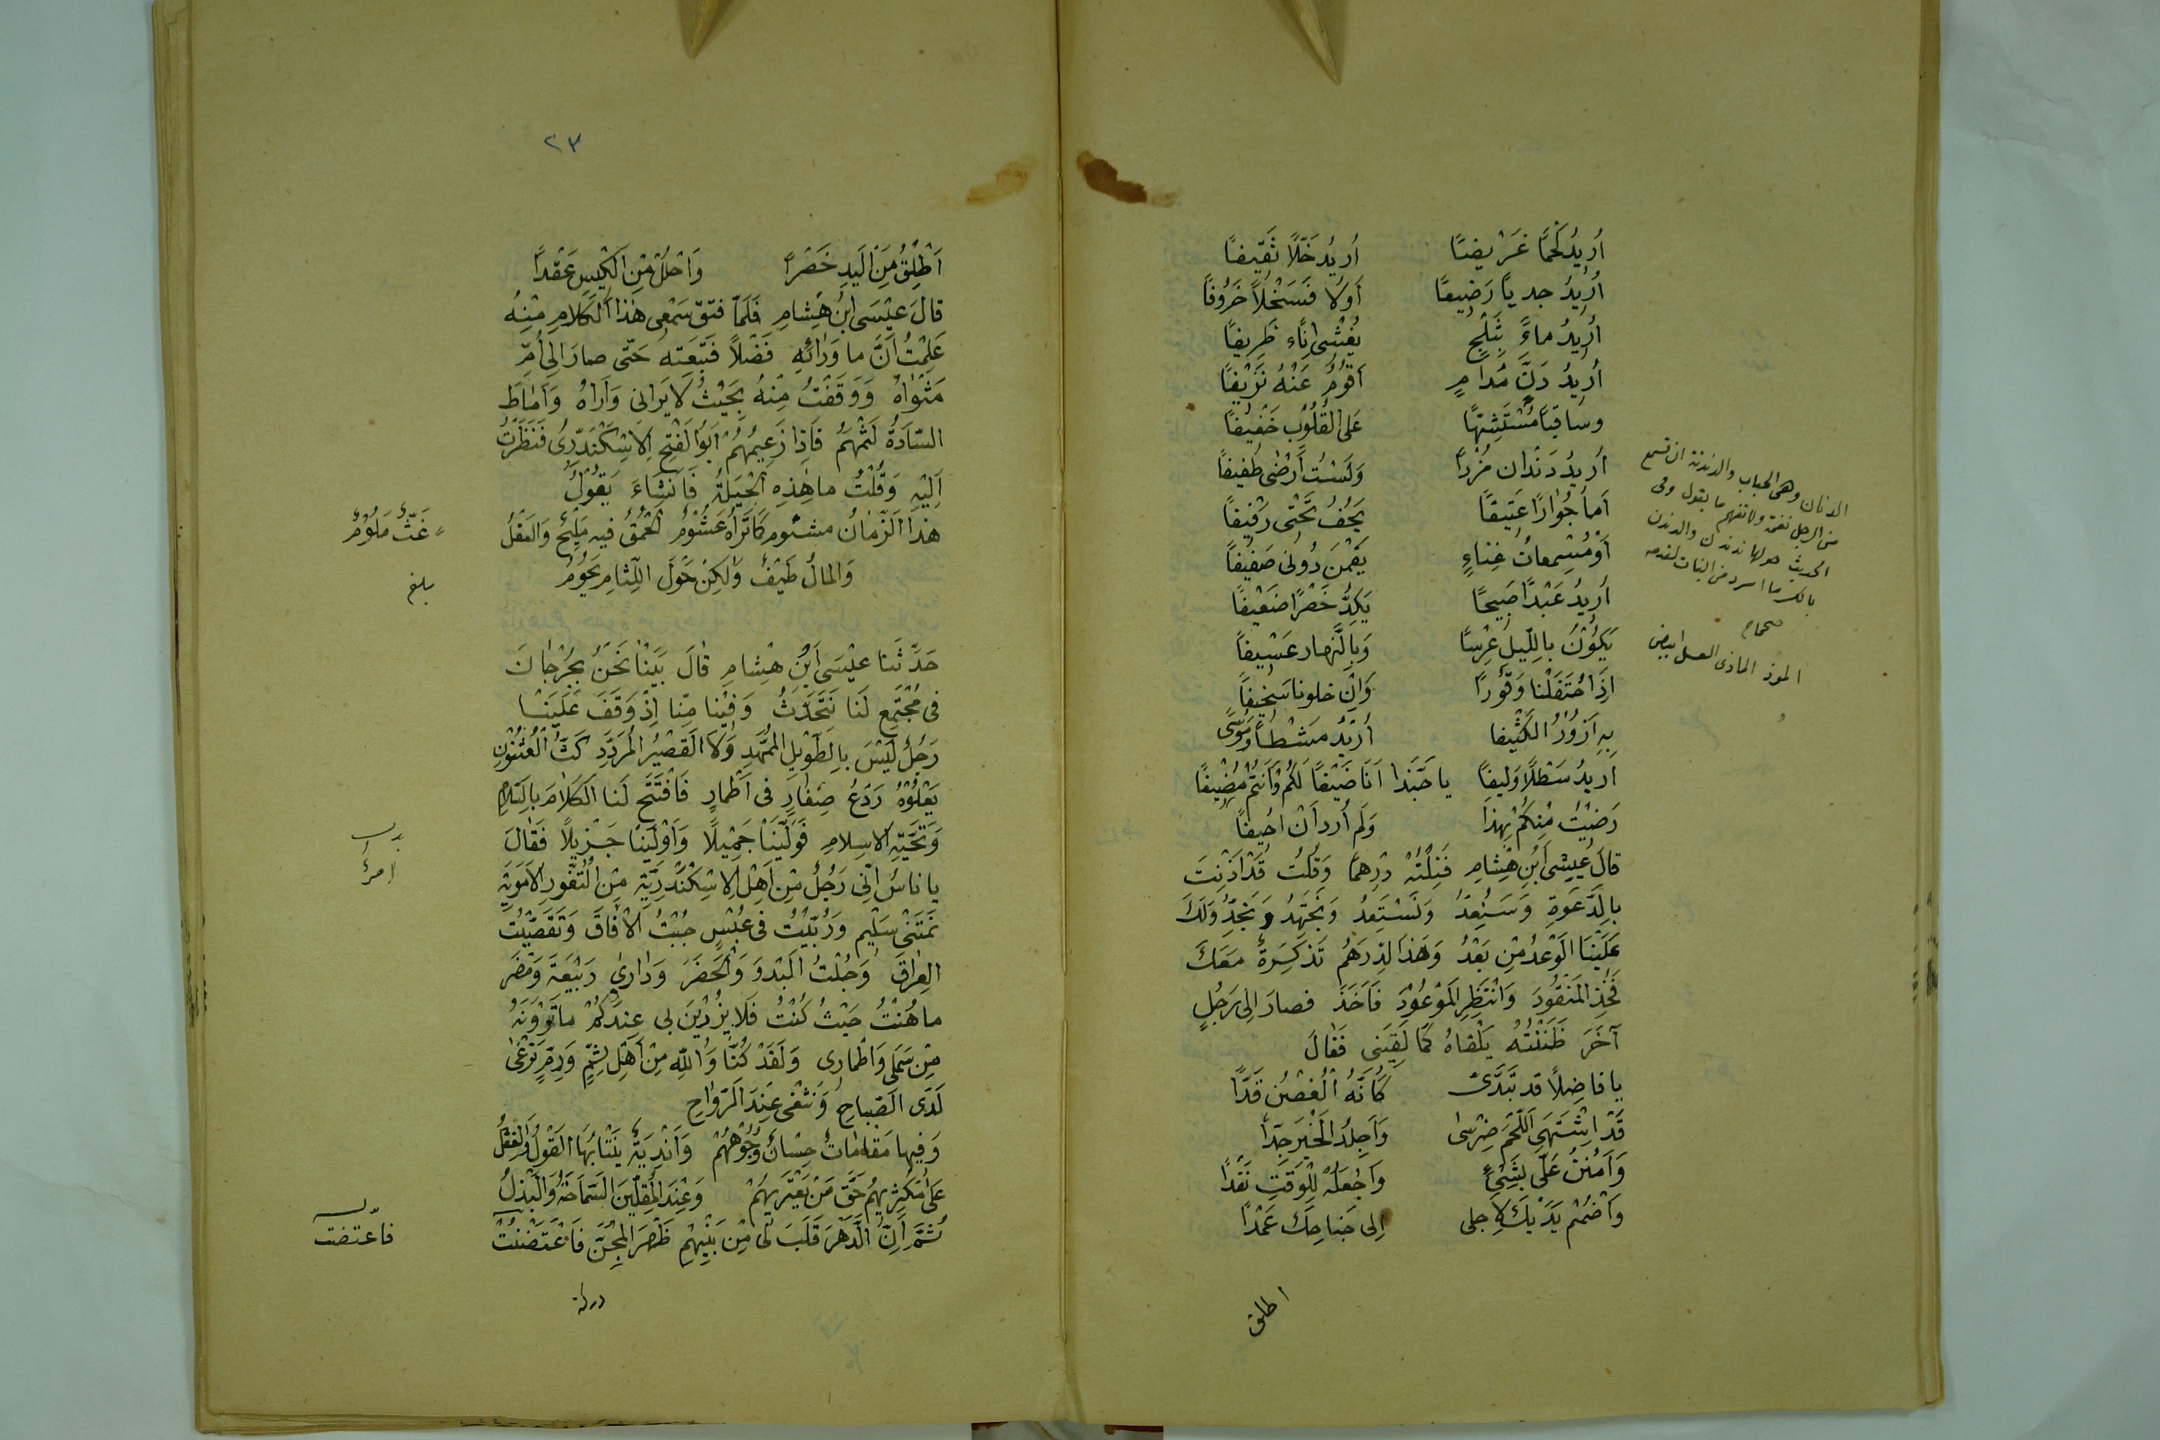 اُرِيدُ لَحْمًا غَرِيضًا اُرِيدُ خَلًّا ثَقِيفًا
اُرِيدُ جديًا رَضِيعًا اَوْلَا فَسَخْلًا خَرُوفًا
اُرِيدُ مَاءً بِثَلْجٍ يُغْشى اِنَاءً ظَرِيفًا
اُرِيدُ دَنَّ مُدامٍ اَقُومُ عَنْهُ نَزِيفًا
وساقِيًا مُسْتَهِشًّا عَلى القُلُوبِ خَفِيفًا
اُرِيدُ دَنْدان مُرْدًا وَلَسْتُ أَرْضى طَفِيفًا
يَجُفُّ تَحْتى رَفِيفًا
اَوْ مُسْمِعاتِ غِناءٍ يَقُمْنَ دُونى صَفِيفًا
اُرِيدُ عَبْدًا صَبِيحًا يَكِدُّ خَصْرًا ضَعِيفًا
يَكُونُ بِاللَّيلِ عِرْسًا وَبِالنَّهارِ عَسِيفًا
اِذَا احْتَفَلْنَا وَقُورًا وَاِنْ خلونا سَخِيفًا
بِهِ اَزُورُ الكَثِيفا اُرِيدُ مشطًا وَمُوسًى
اُرِيدُ سَطْلًا وَلِيفًا يا حَبَّذا اَنَا ضَيْفًا لَكُمْ وَأَنْتُمْ مُضِيفًا
رَضِيتُ مِنْكُمْ بِهذا وَلَم اُرِدْ اَنْ اَحِيفًا
قالَ عِيسى ابْنِ هِشامِ فَنِلْتُهُ دِرْهمًا وَقُلْتُ قَدْ اَذِنْتَ
بِالدَّعْوَةِ وَسَنُعِدُّ وَنَسْتَعِدُ وَنَجْتَهِدُ وَنَجِدُّ وَلَكَ
عَلَيْنَا الْوَعْدُ مِنْ بَعْدُ وَهَذا الدِرْهَمُ تَذكِرَةٌ مَعَكَ
فَخُذِ الْمَنْقُودَ وَانْتَظِرِ الْمَوْعُودَ فَاَخَذَ فصارَ اِلى رَجُلٍ
آخَرَ ظَنَنْتُهُ يَلْقاهُ كَمَا لَقِيَنِى فَقَالَ
يا فاضِلًا قد تَبَدَّى كَاَنَّهُ الْغُصْنُ قَدًّا
قَدْ اشْتَهِى اللَّحْمَ ضِرْسى وَاجْلِدُ الْخُبْزَ جِدًّا
وَامْنُنْ عَلَىَّ بِشَيْءٍ وَاجْعَلْهُ لِلْوَقْتِ نَقْدًا
وَاضْمُمْ يَدَيْكَ لِاَجلى اِلى جَناحِكَ عَمْدًا
اطلق
الدنان وهى الحباب والدندنة ان تسمع
من الرجل نغمة ولا تفهم ما يقول وفى
الحديث حولها ندندن والدندن
العسل ابيض
٢٣
اَطْلِقْ مِنَ الْيَدِ خَصْرًا وَاحْلُلْ مِنَ الْكِيسِ عَقْدًا
قالَ عِيسَى ابْنُ هِشامِ فَلَمَّا فتق سَمْعِى هذا الْكَلامِ مِنْهُ
عَلِمْتُ اَنَّ ما وَرائَهِ فَضْلًا فَتَبِعْتهِ حَتّى صارَ اِلى اُمِّ
مَثْواهُ وَوَقَفْتُ مِنْهُ بِحَيْثُ لا يَرانى وَأَراهُ وَاَماطَ
السَّادَةُ لُثُمَهُم فَاِذا زَعِيمُهُمْ اَبُو الْفَتْحِ الاِسْكَنْدَرِىُ فَنَظَرْتُ
اِلَيْهِ وَقُلْتُ ما هٰذِهِ الْحِيلَةُ فَاَنْشَاءَ يَقُولُ
هٰذا الزَّمانُ مشئوم كَمَا تَرَاهُ غَشُومُ الْحُمْقُ فيه مَلِيحٌ وَالعَقْلُ
غَثٌّ مَلُومُ
وَالمالُ طَيْفٌ وَلكِنْ حَوْلَ اللِّئامِ يَحُومُ
بلغ
حَدَّثَنا عِيسَى ابْنُ هِشامِ قالَ بَيْنَا نَحْنُ بِجُرْجانَ
فى مُجْتَمَعٍ لَنا نَتَحَدَّثُ وَفِيْنا مِنّا اِذْ وَقَفَ عَلَيْنا
رَجُلٌ لَيْسَ بِالطَّوِيلِ المُمَّدِ وَلا القَصْيرُ المُرَدَّدِ كَثُّ الْعُثْنُوْنِ
يَتْلُوْهُ رَدَعُ صِغارٍ فى اَطْمارٍ فَافْتَتَحَ لَنا الكَلامَ بِالسَّلامِ
وَتَحِيَّةِ الاِسلامِ فَوَلَّيْنَا جَمِيْلًا وَاَوْلَيْنا جَزِيلًا فَقالَ
يا ناسُ اِنّى رَجُلٌ مِنْ اَهْلِ الاِسْكَنْدَرِيَّةِ مِنَ الثُّغُورِ الاَمَوِيَّةِ
نَمَتْنِى سَلِيم وَرُبِّيْتُ فى عُبْسٍ جُبْتُ الْافاقَ وَتَقَصَّيْتُ
العِراقَ وَجُلْتُ الْبَدْوَ وَالْحَضَرَ وَدارَى رَبِيْعَةَ وَمُضَرَ
ما هُنْتُ حَيْثُ كُنْتُ فَلا يُزْرِيَنَ بى عِنْدَكُمْ ما تَرَوْنَهُ
مِنْ سَمَلى وَاَطْمارى وَلَقَدْ كُنَّا وَاللهِ مِنْ اَهْلِ ثِمٍّ وَرِمٍّ نَرْغى
لَدَى الصَّباحِ وَنَثْغى عِنْدَ الرَّواحِ
وَفِيها مَقاماتٌ حِسانٌ وُجُوهُهُمْ وَاَنْدِيَةٌ يَنْتابُهَا القَوْلُ وَالفِعْلُ
عَلى مُكْثِرِيهُمْ حَقُّ مَنْ يَعْتَرِيهُمْ وَعِنْدَ المُقِلِّيْنَ السَّماحَةُ وَالبَذْلُ
ثُمَّ اِنَّ الدَّهْرَ قَلَبَ لى مِنْ بَيْنِهِمِ ظَهْرَ المِجَنِّ فَاعْتَضْتُ
فاعتضت